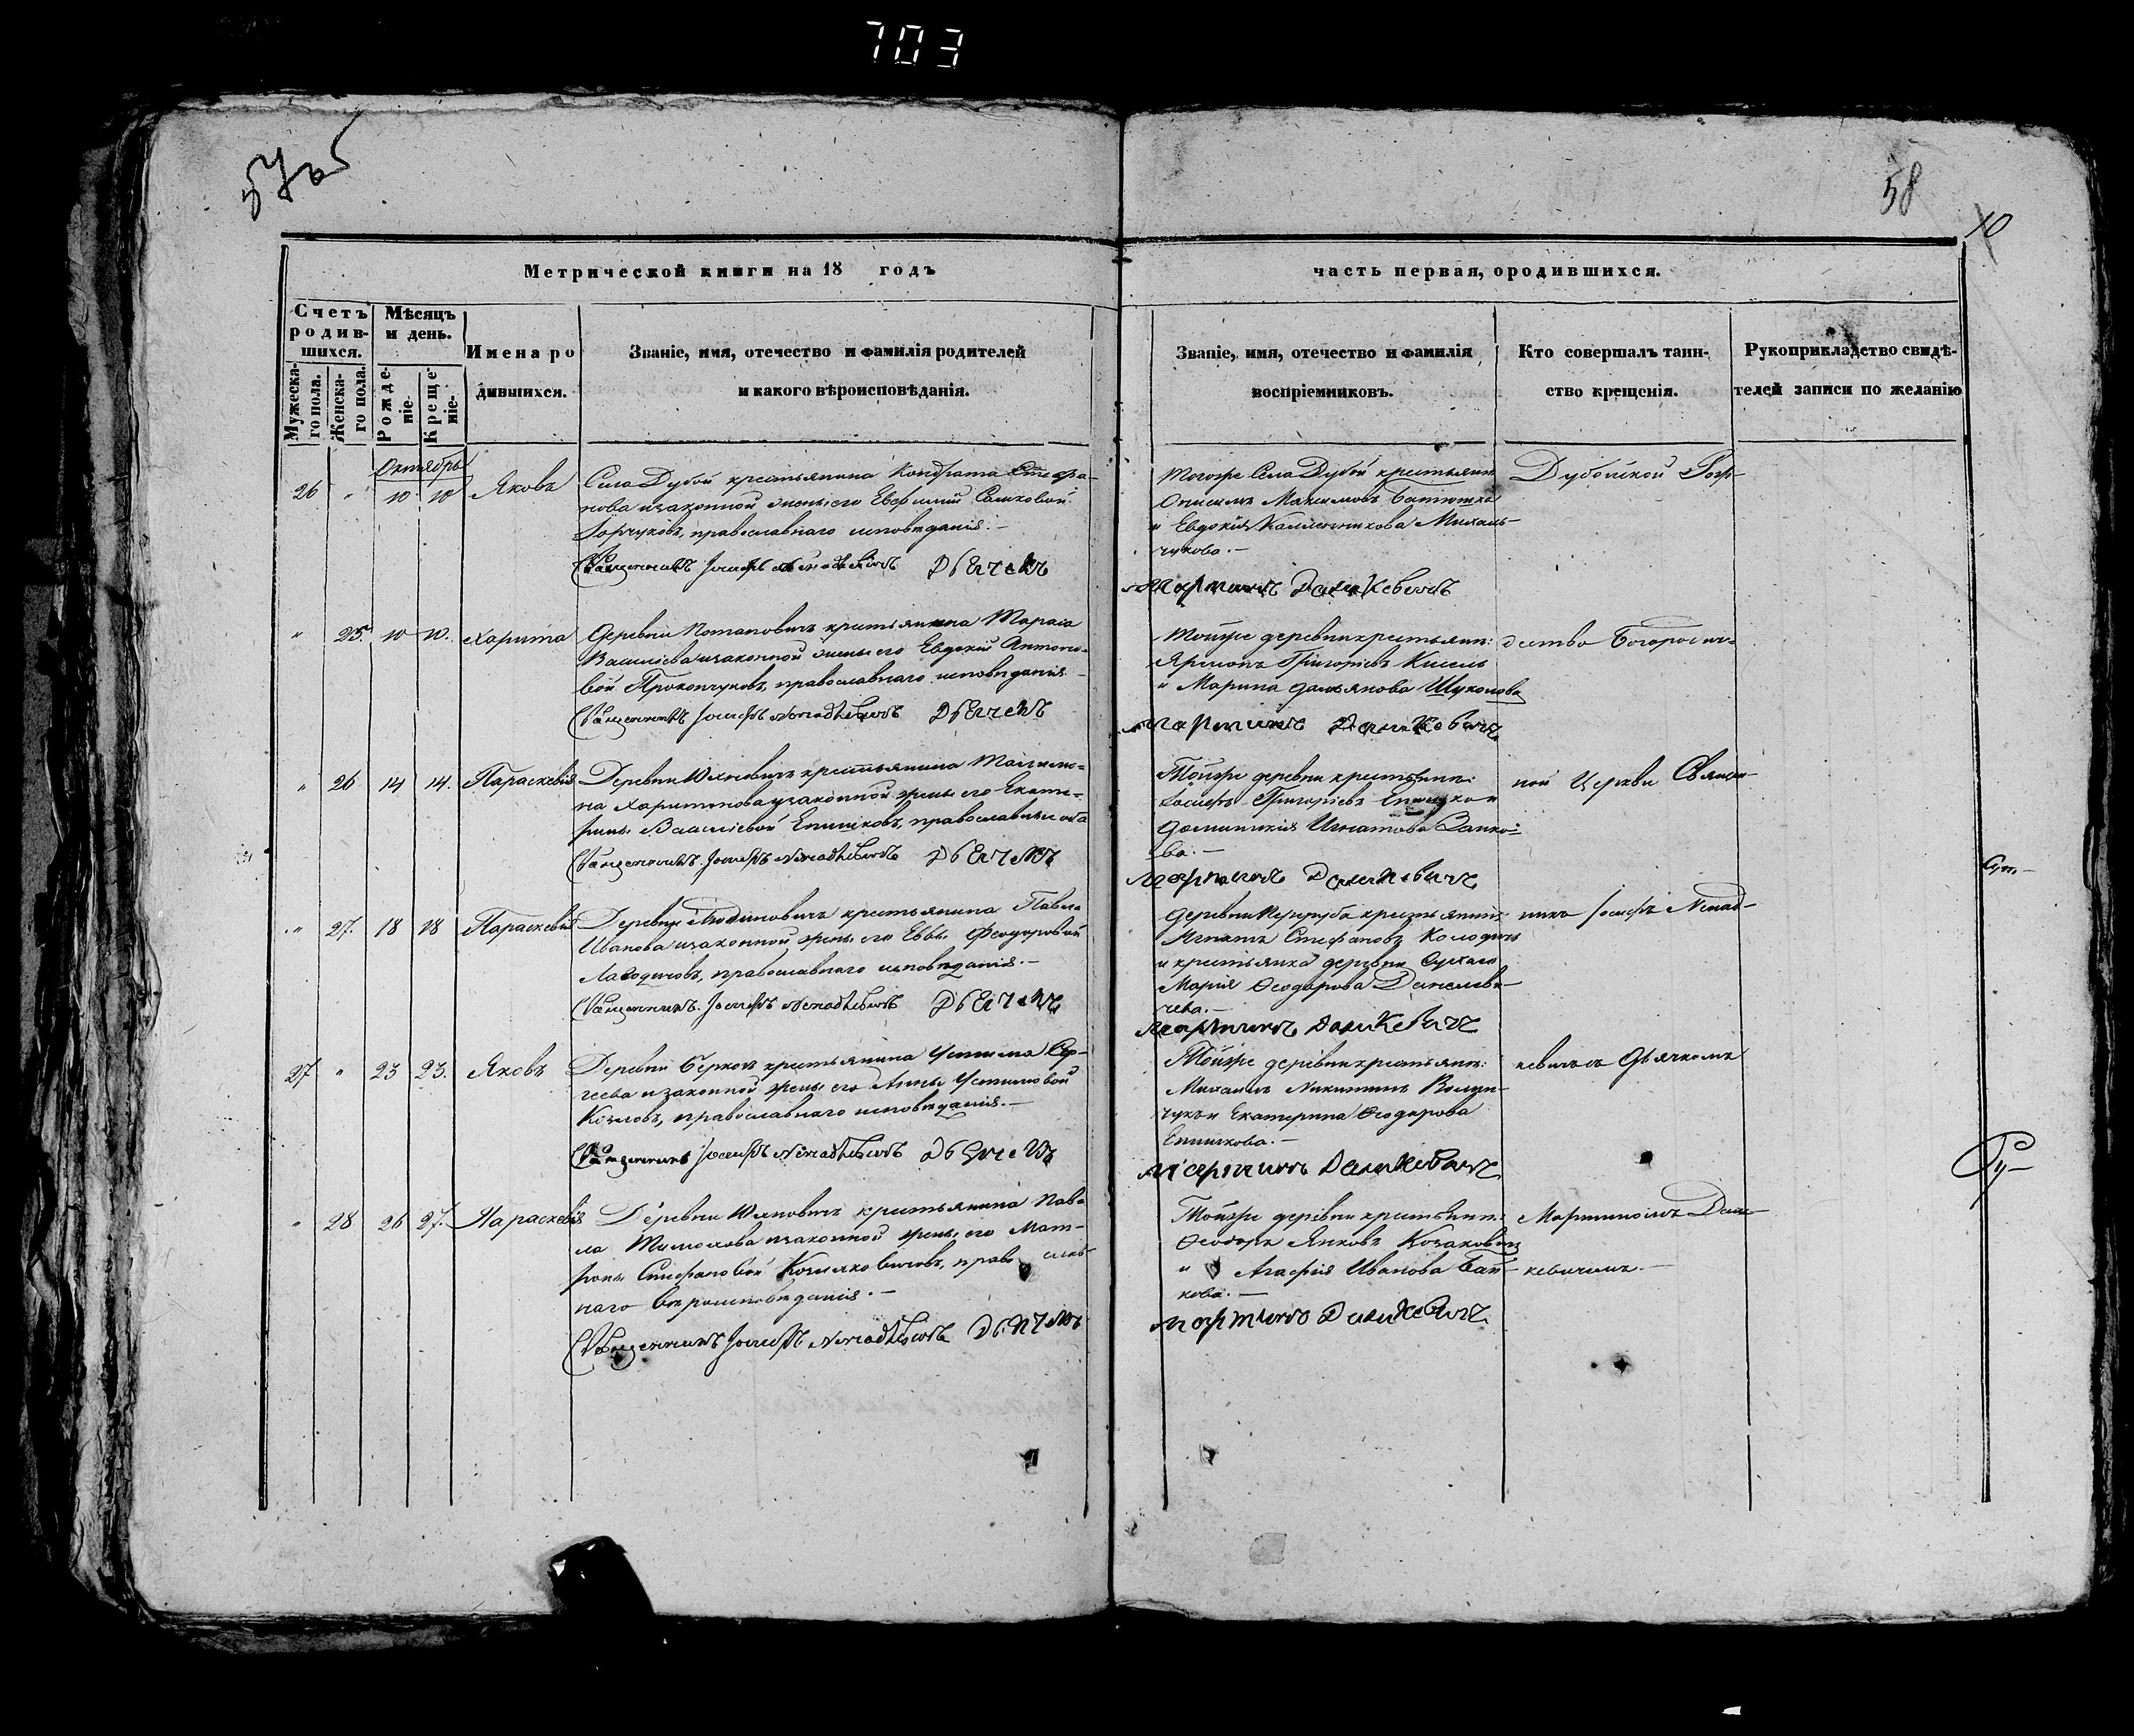 703
57об
58
10
Метрической книги на 18 годъ
часть первая, ородившихся.
Счетъ родив-шихся.
Мужеска-го пола.
Женска-го пола.
Мѣсяцъ и день.
Рожде-ніе.
Креще-ніе.
Имена ро
дившихся.
Званіе, имя, отечество и фамилія родителей
и какого вѣроисповѣданія.
Званіе, имя, отечество и фамилія
воспріемниковъ.
Кто совершалъ таин-
ство крещенія.
Рукоприкладство свидѣ-
телей записи по желанію
Октябрь
26 " 10 10 Яковъ
Села Дубой крестьянина Кондрата Стефа-
нова изаконной жены его
православнаго исповѣданія.—
Священникъ Іосифъ Ненадкевичъ Дьячекъ
Тогоже Села Дубой крестьянинъ
Онисимъ Максимовъ Батюшко
и Евдокія Михаль-
чукова.—
Мартинъ Данкевичъ
Дубойской Рож-
" 25. 10 10. Харита
Деревни Потаповичъ крестьянина Тараса
Василіева изаконной жены его Евдокіи Антоно-
вой Прокопчуковъ, православнаго исповѣданія
Священникъ Іосифъ Ненадкевичъ Дьячекъ
Тойже деревни крестьянин:
Григоріевъ Кисель
и Марина Дамьянова
Мартинъ Данкевичъ
дество Богородич-
" 26 14 14. Параскевія
Деревни Юхновичъ крестьянина
Харитонова изаконной жены его Екате-
рины Василіевой Епишковъ, православныхъ оба
Священникъ Іосифъ Ненадкевичъ Дьячекъ
Тойже деревни крестьянин:
Іосифъ Григоріевъ Епишко и
Домникія Игнатова
ва.—
Мартинъ Данкевичъ
ной Церкви Священ-
" 27. 18 18 Параскевія
Деревни крестьянина Павла
Иванова изаконной жены его Еввы Феодоровой
православнаго исповѣданія.—
Священникъ Іосифъ Ненадкевичъ Дьячекъ
Деревни крестьянинъ
Игнатъ Стефановъ Колодичъ
и крестьянка деревни
Марія Ѳеодорова
чева.—
Мартинъ Данкевичъ
никъ Іосифъ Ненад-
27 " 23 23. Яковъ
Деревни крестьянина Устина Сер-
геева изаконной жены его Анны Устиновой
Козловъ, православнаго исповѣданія.—
Священникъ Іосифъ Ненадкевичъ Дьячекъ
Тойже деревни крестьянин:
Михаилъ Никитинъ
чукъ и Екатерина Ѳеодорова
Епишкова.—
Мартинъ Данкевичъ
кевичъ съ Дьячкомъ
" 28 26 27. Параскевія
Деревни Юхновичъ крестьянина Пав-
ла Тимохова изаконной жены его Мат-
роны Стефановой православ-
наго вѣроисповѣданія.—
Священникъ Іосифъ Ненадкевичъ Дьячекъ
Тойже деревни крестьянин:
Ѳеодоръ Янковъ Козаковичъ
и Агафія Иванова Бай-
кова.—
Мартинъ Данкевичъ
Мартиномъ Дан-
кевичемъ.—